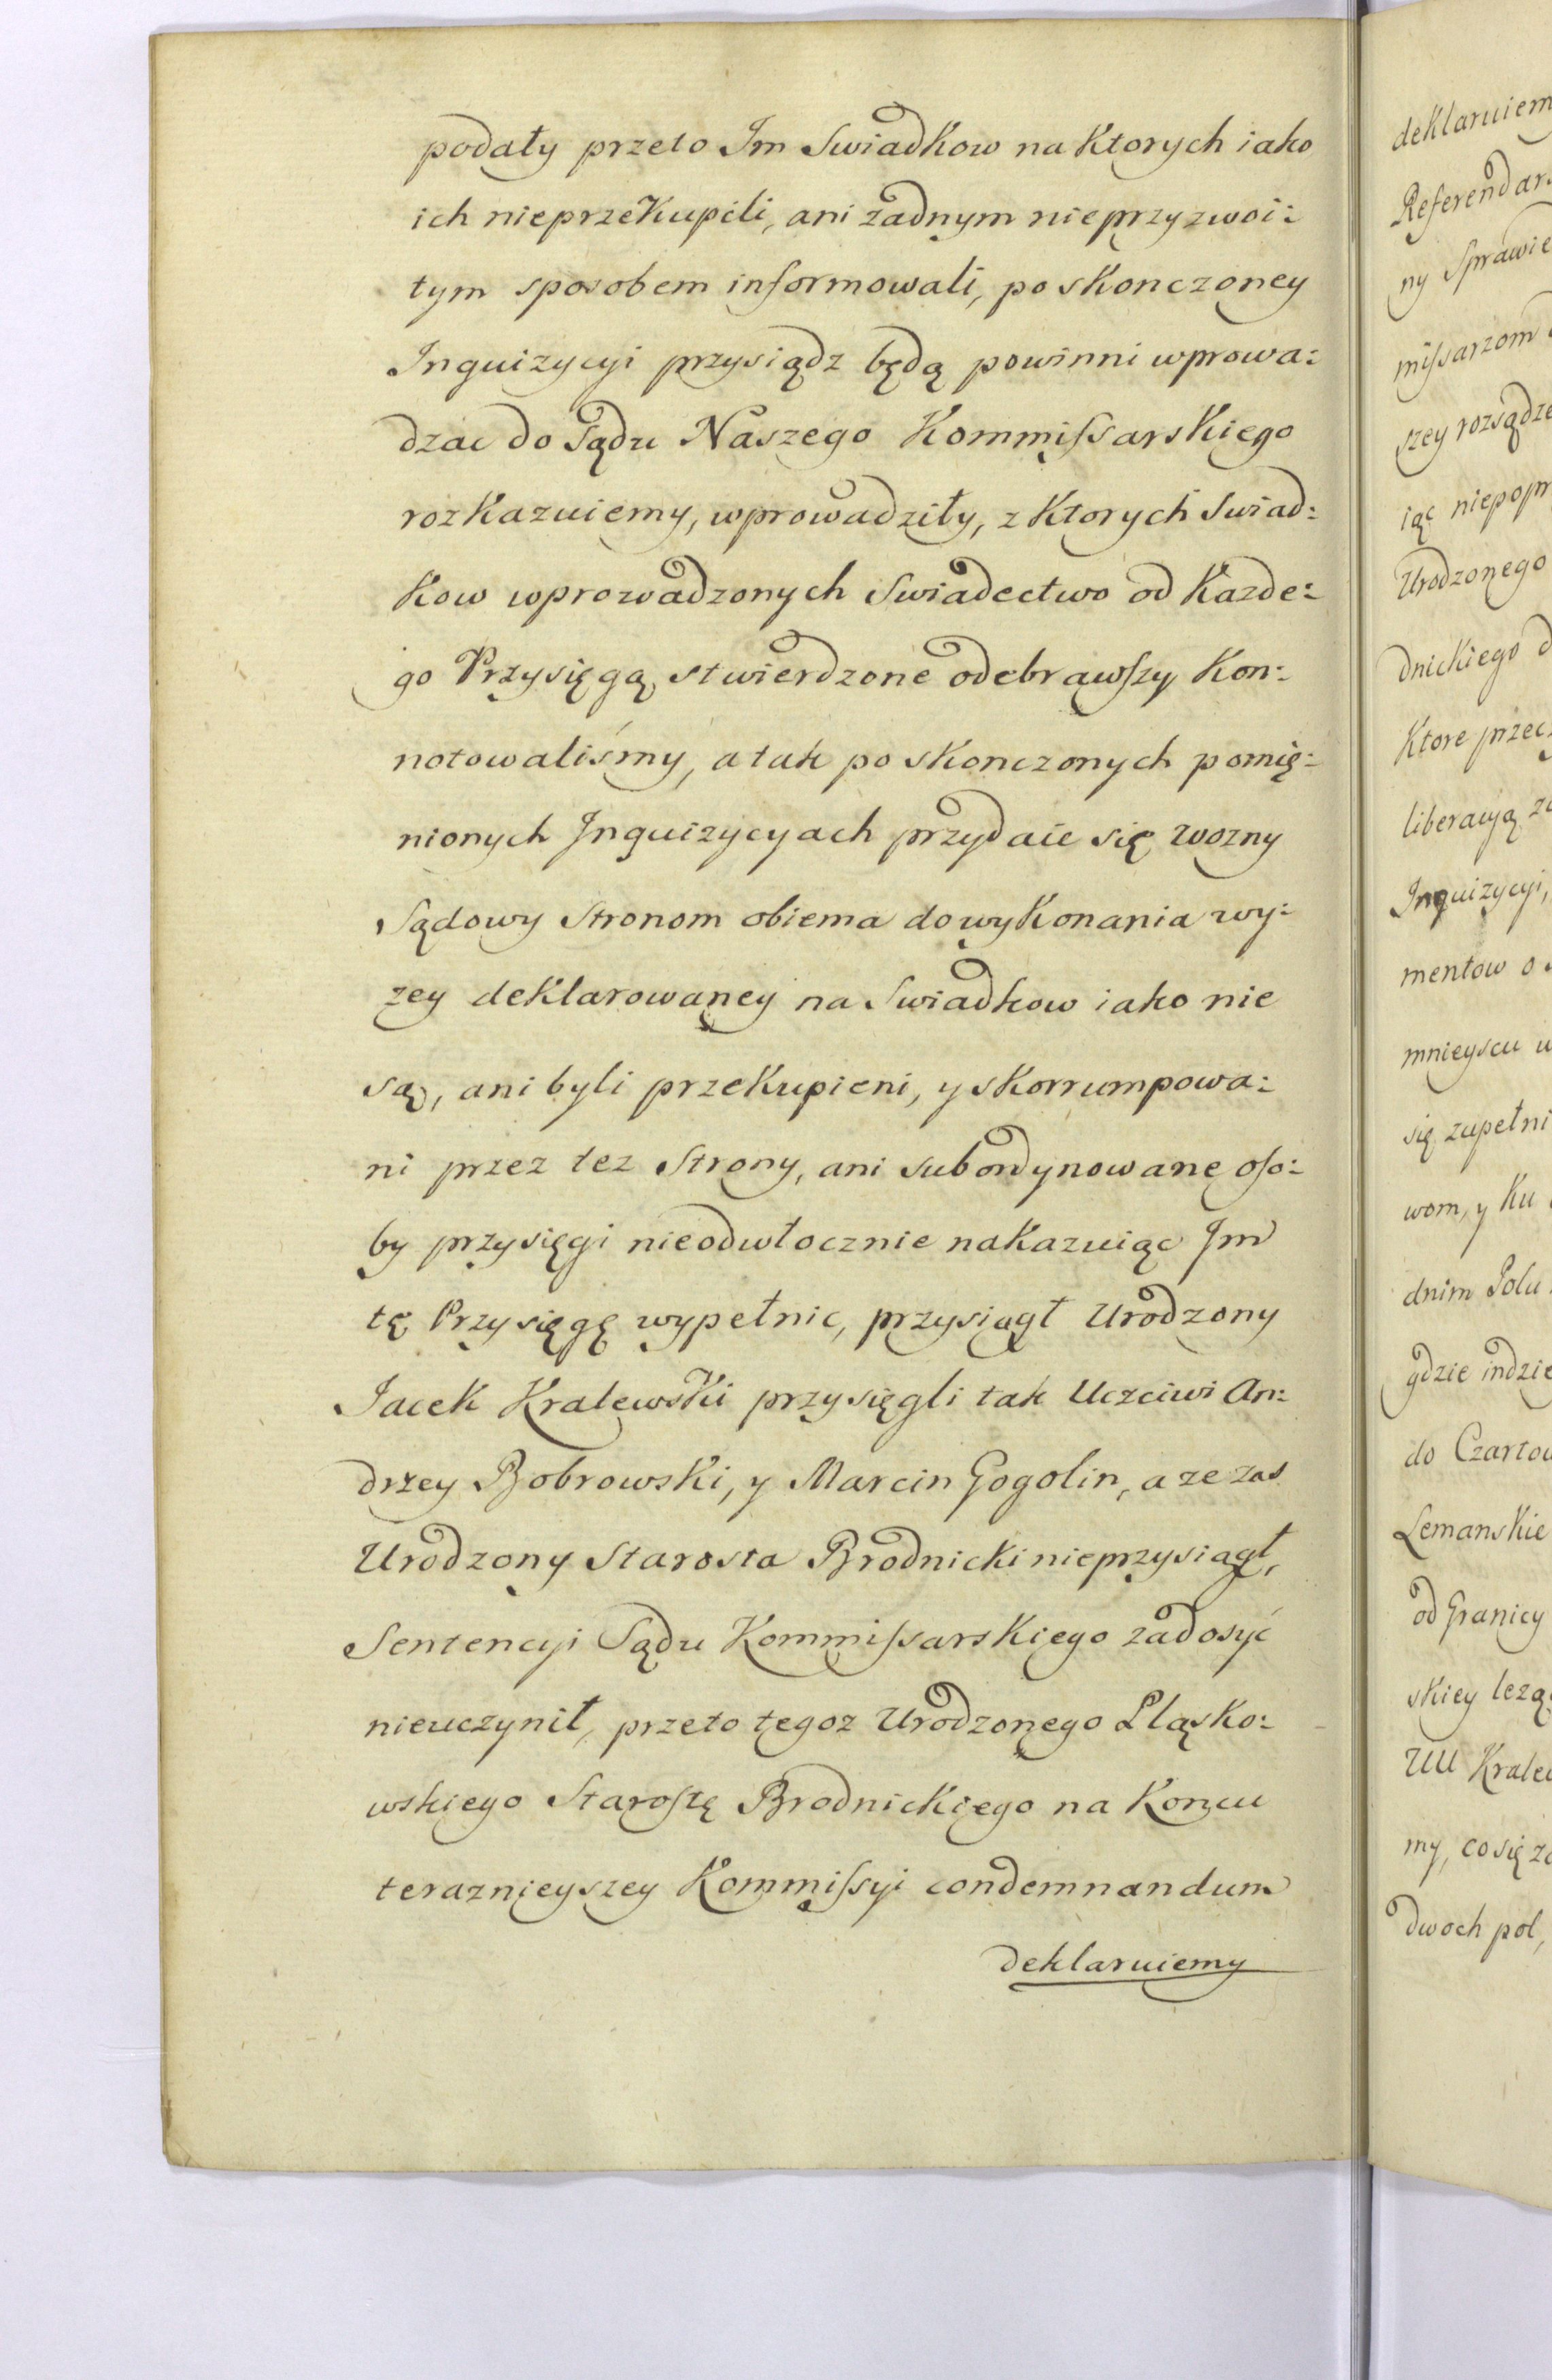 podały przeto Im Swiadkow na Ktorych iako
ich nieprzekupili, ani żadnym nieprzyzwoi:
tym sposobem informowali, po skonczoney
Inquizycyi przysiądz będą powinni wprowa:
dzac do Sądu Naszego Kommiſsarskiego
rozkazuiemy, wprowadziły, z Ktorych Swiad:
kow wprowadzonych Swiadectwo od Kazde:
go Przysięgą stwierdzone odebrawſzy Kon:
notowaliśmy, a tak po skonczonych pomię:
nionych Inquizycyach przydaie się wozny
Sądowy Stronom obiema do wykonania wy:
zey deklarowaney na Swiadkow iako nie
są, ani byli przekupieni, y skorrumpowa:
ni przez tez Strony, ani subordynowane oſo:
by przysięgi nieodwłocznie nakazuiąc Im
tę Przysięgę wypełnic, przysiągł Urodzony
Jacek Kralewski przysięgli tak Uczciwi An:
drzey Bobrowski, y Marcin Gogolin, a ze zas
Urodzony Starosta Brodnicki nieprzysiągł,
Sentencyi Sądu Kommiſsarskiego zadosyć
nieuczynił, przeto tegoz Urodzonego Pląsko:
wskiego Staroſtę Brodnickiego na Koncu
teraznieyszey Kommiſsyi condemnandum
deklaruiemy
deklaruiem
Referendar
ny Sprawie
miſsarzom
szey rozsądze
iąc niepopr
Urodzonego
dnickiego d
Ktore przec
liberacyą za
Inquizycyi,
mentow o
mnieyscu w
się zupełni
wom, y Ku
dnim Polu
gdzie indzie
do Czartow
Lemanskie
od Granicy
skiey lezą
UU Kralew
my, co się za
dwoch pol,